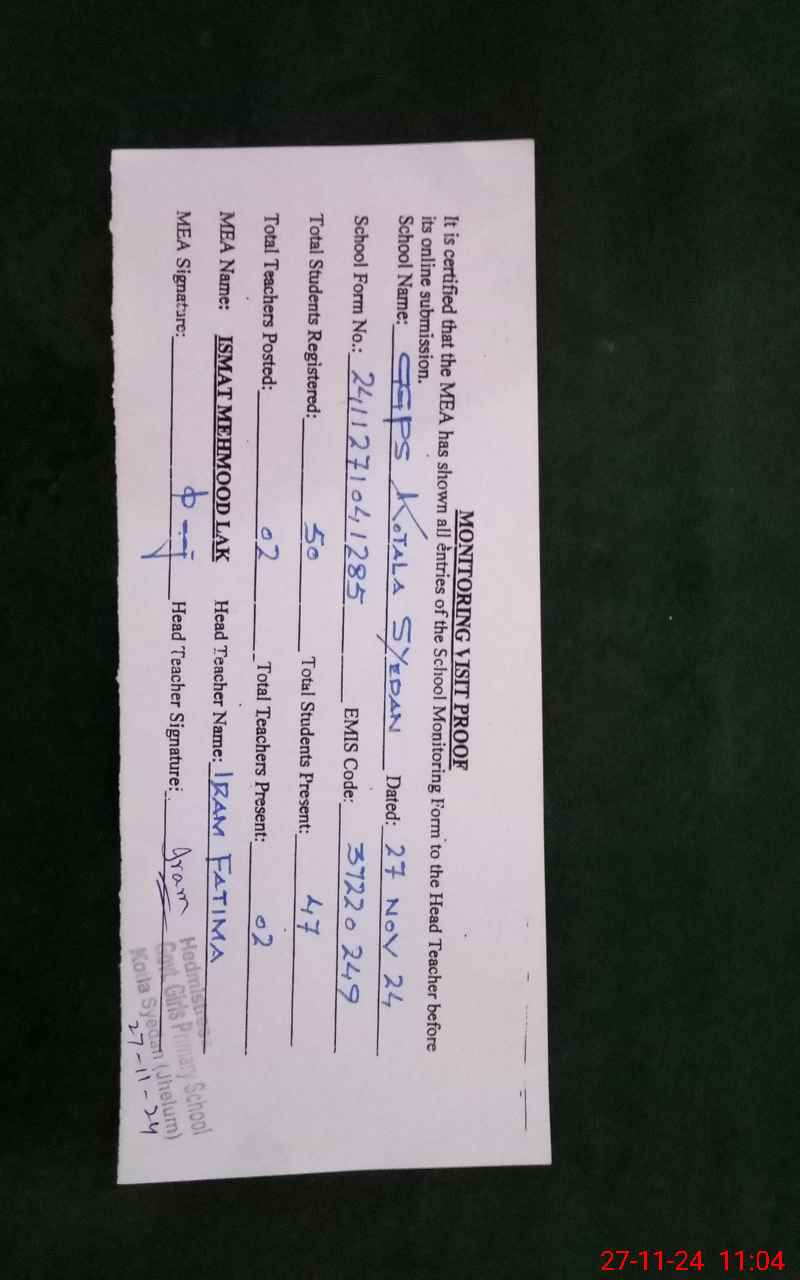 MONITORING VISIT PROOF
It is certified that the MEA has shown all entries of the School Monitoring Form to the Head Teacher before
its online submission.
School Name: GGPS KOTALA SYEDAN Dated: 27 NOV 24
School Form No.: 2411271041285 EMIS Code: 37220249
Total Students Registered: 50 Total Students Present: 47
Total Teachers Posted: 02 Total Teachers Present: 02
MEA Name: ISMAT MEHMOOD LAK Head Teacher Name: IRAM FATIMA
MEA Signature: Head Teacher Signature: Iram
Hedmistress
Govt. Girls Primary School
Kotla Syedan (Jhelum)
27-11-24
27-11-24 11:04